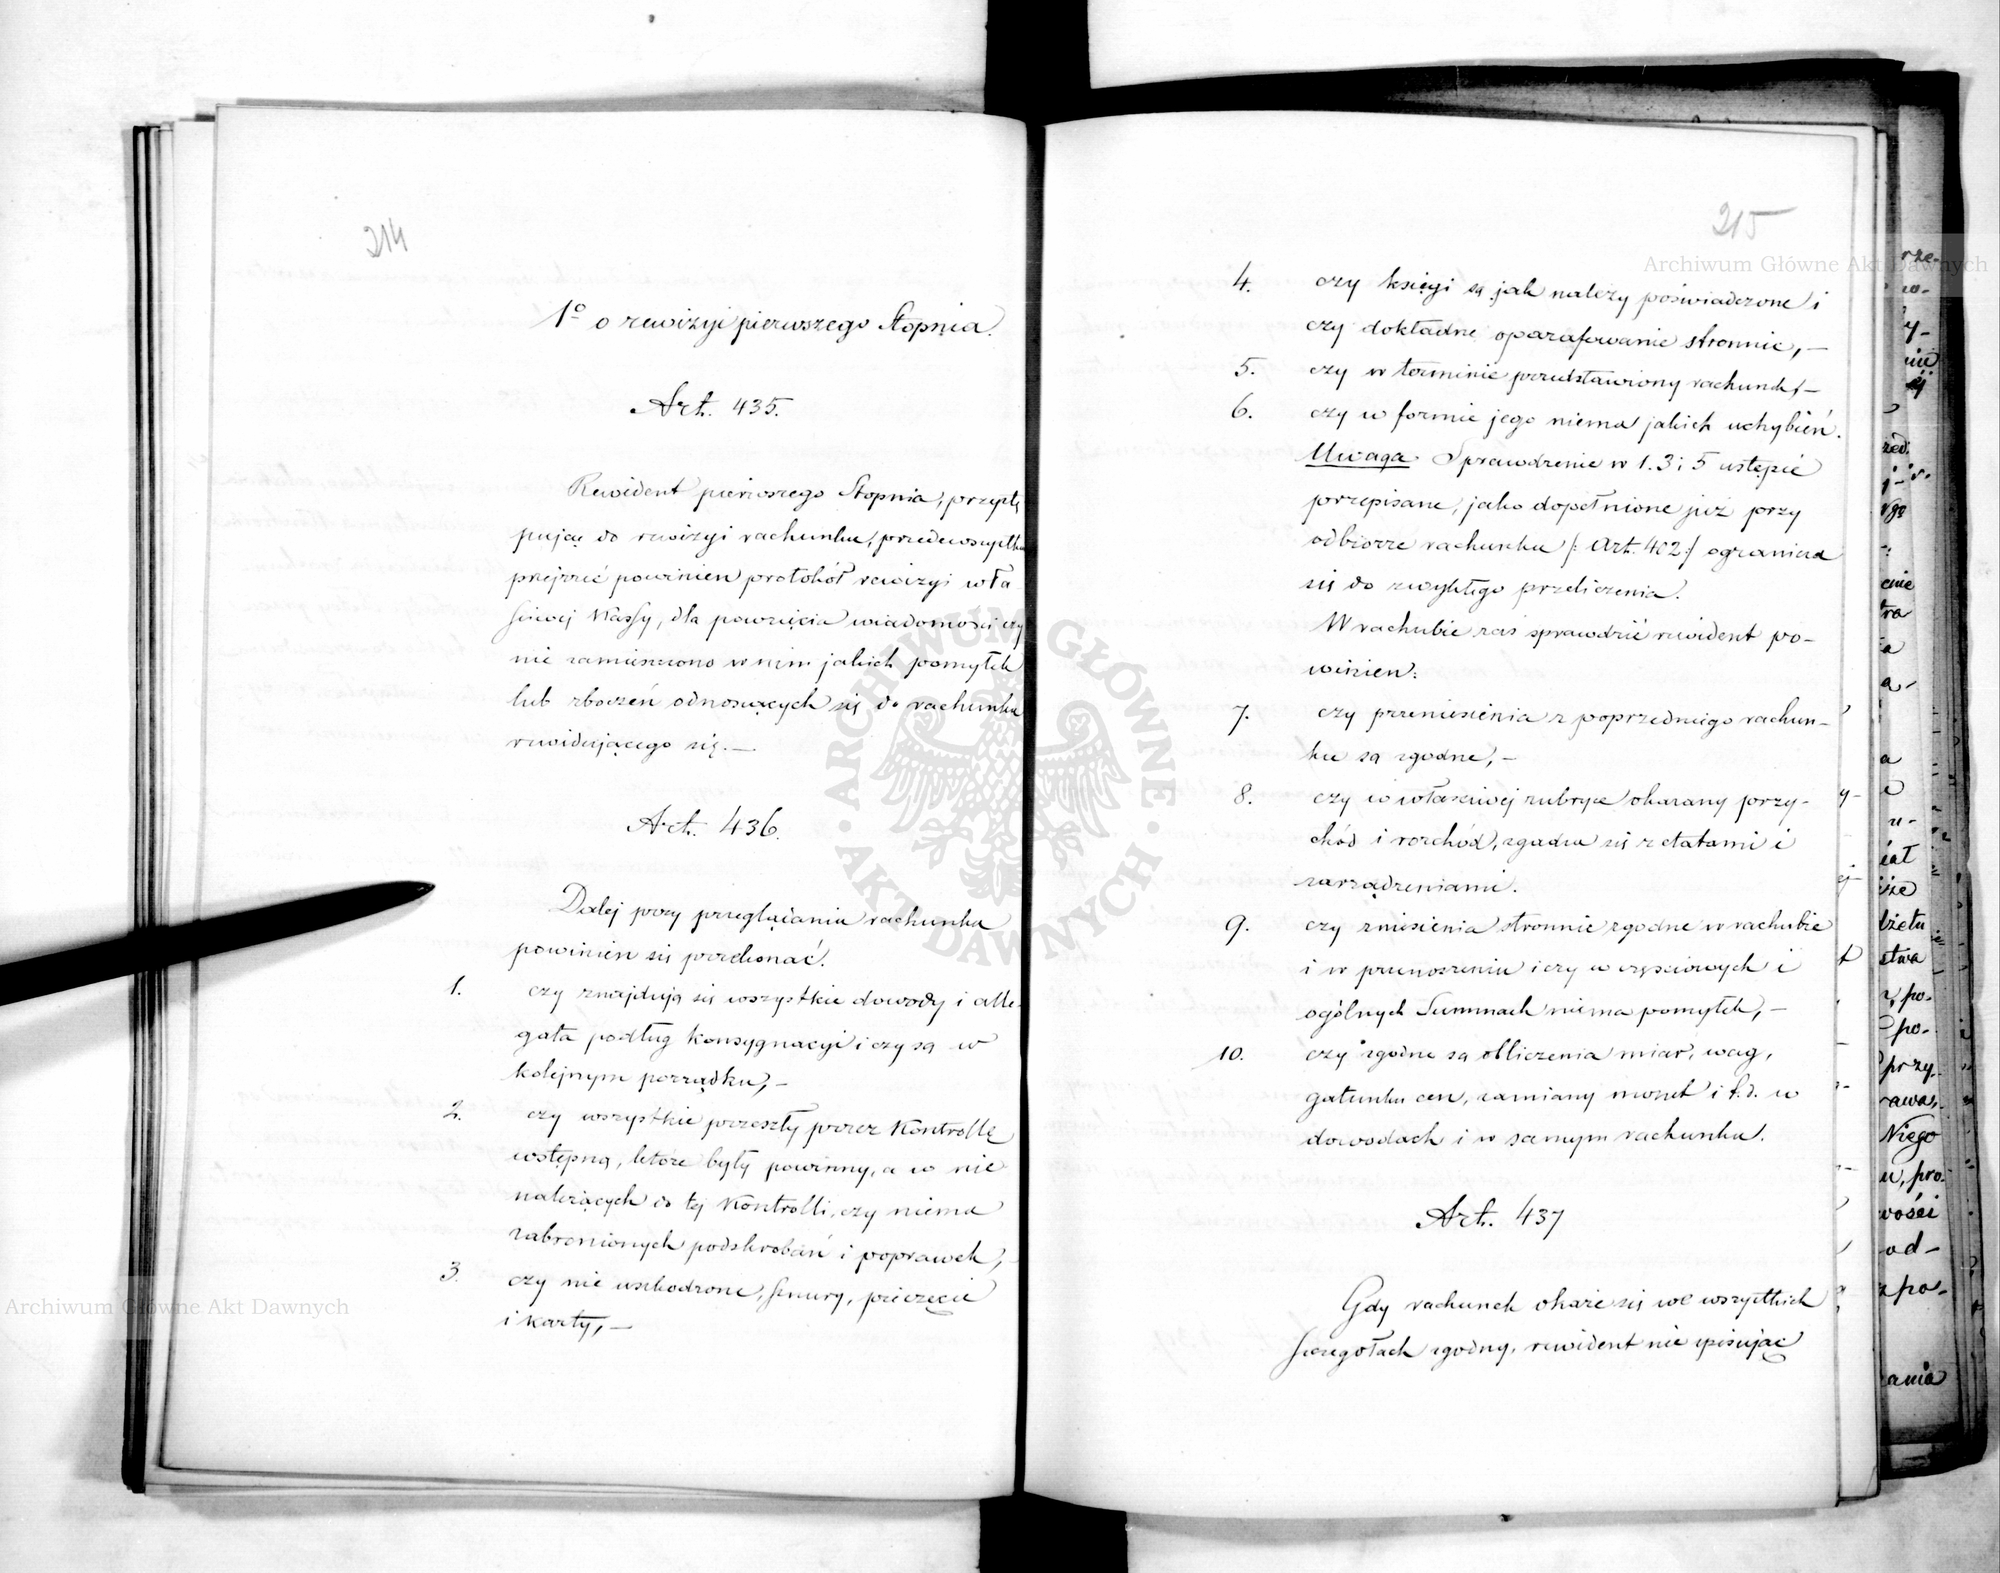 214
1º o rewizyi pierwszego Stopnia.
Art. 435.
Rewident pierwszego Stopnia, przystę
pując do rewizyi rachunku, przedewszystkiem
przejrzeć powinien protokół rewizyi wła
ściwej Kassy, dla powzięcia wiadomości czy
nie zamieszczono w nim jakich pomyłek
lub zboczeń odnoszących się do rachunku
rewidującego się. —
Art. 436.
Dalej przy przeglądaniu rachunku
powinien się przekonać.
1. czy znajdują się wszystkie dowody i alle-
gata podług Konsygnacyi i czy są w
kolejnym porządku, —
2. czy wszystkie przeszły przez Kontrollę
wstępną, które były powinny, a w nie
należących do tej Kontrolli, czy niema
zabronionych podskrobań i poprawek, —
3. czy nie uszkodzone, sznury, pieczęcie
i karty, —
215
4. czy księgi są jak należy poświadczone i
czy dokładne oparafowanie stronnic, —
5. czy w terminie przedstawiony rachunek, —
6. czy w formie jego niema jakich uchybień.
Uwaga. Sprawdzenie w 1. 3 i 5 ustępie
przepisane, jako dopełnione już przy
odbiorze rachunku /: Art. 402 :/ ogranicza
się do zwykłego przeliczenia.
W rachubie zaś sprawdzić rewident po-
winien:
7. czy przeniesienia z poprzedniego rachun-
ku są zgodne, —
8. czy w właściwej rubryce okazany przy-
chód i rozchód, zgadza się z etatami i
zarządzeniami.
9. czy zniesienia stronnic zgodne w rachubie
i w przenoszeniu i czy w częściowych i
ogólnych Summach niema pomyłek, —
10. czy zgodne są obliczenia miar, wag,
gatunku cen, zamiany monet i t.d. w
dowodach i w samym rachunku.
Art. 437
Gdy rachunek okaże się we wszystkich
szczegółach zgodny, rewident nie spisując
Archiwum Główne Akt Dawnych
Archiwum Główne Akt Dawnych
ARCHIWUM GŁÓWNE
AKT DAWNYCH